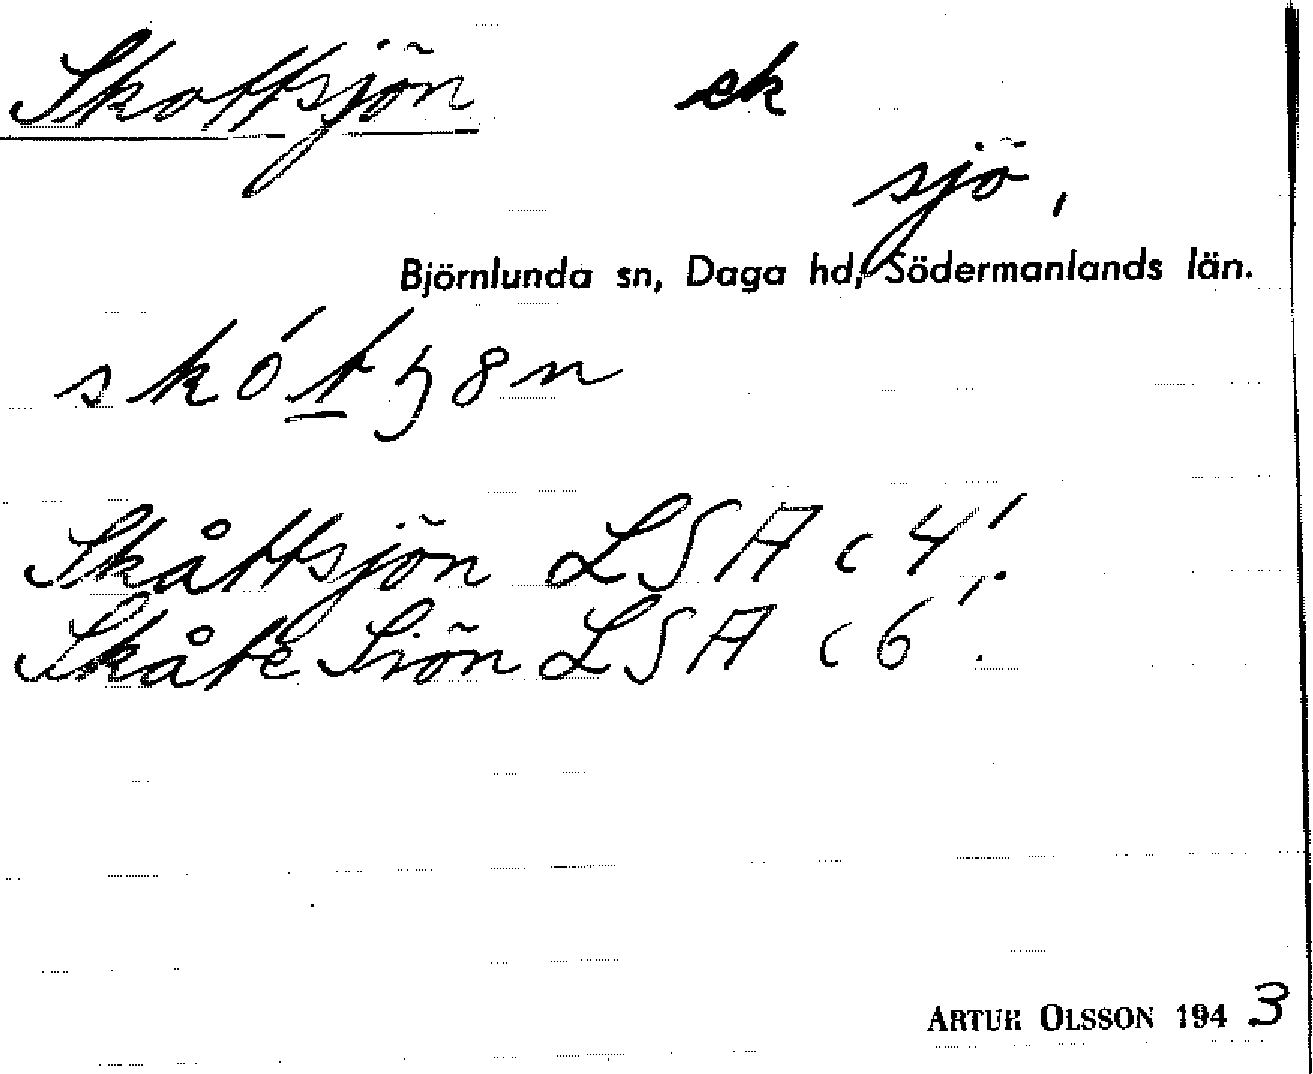 Skottsjön ek
sjö,
Björnlunda sn, Daga hd, Södermanlands län.
Skåttsjön LSA c 4!
Skåte Siön LSA c 6!
ARTUR OLSSON 1943